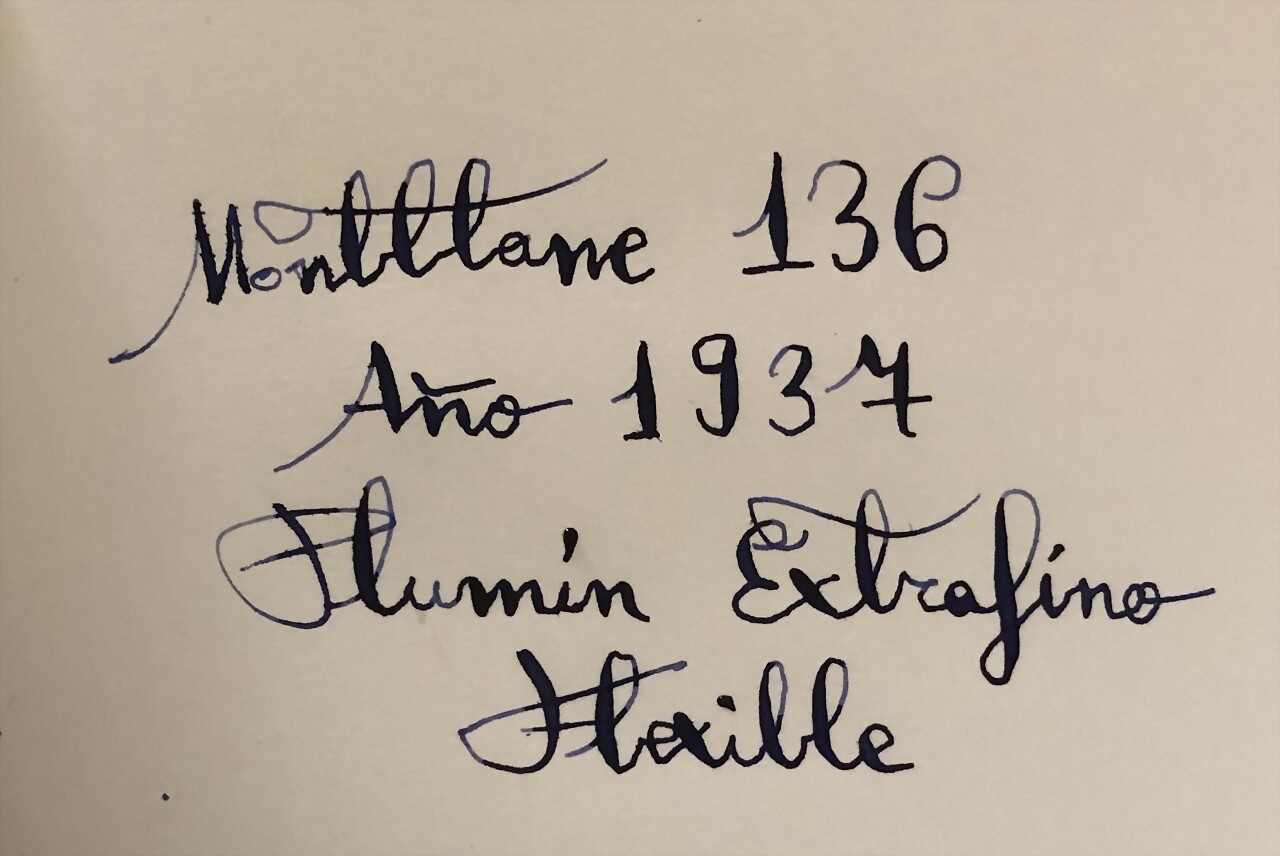 Montblanc 136
Año 1937
Plumín Extrafino
Flexible